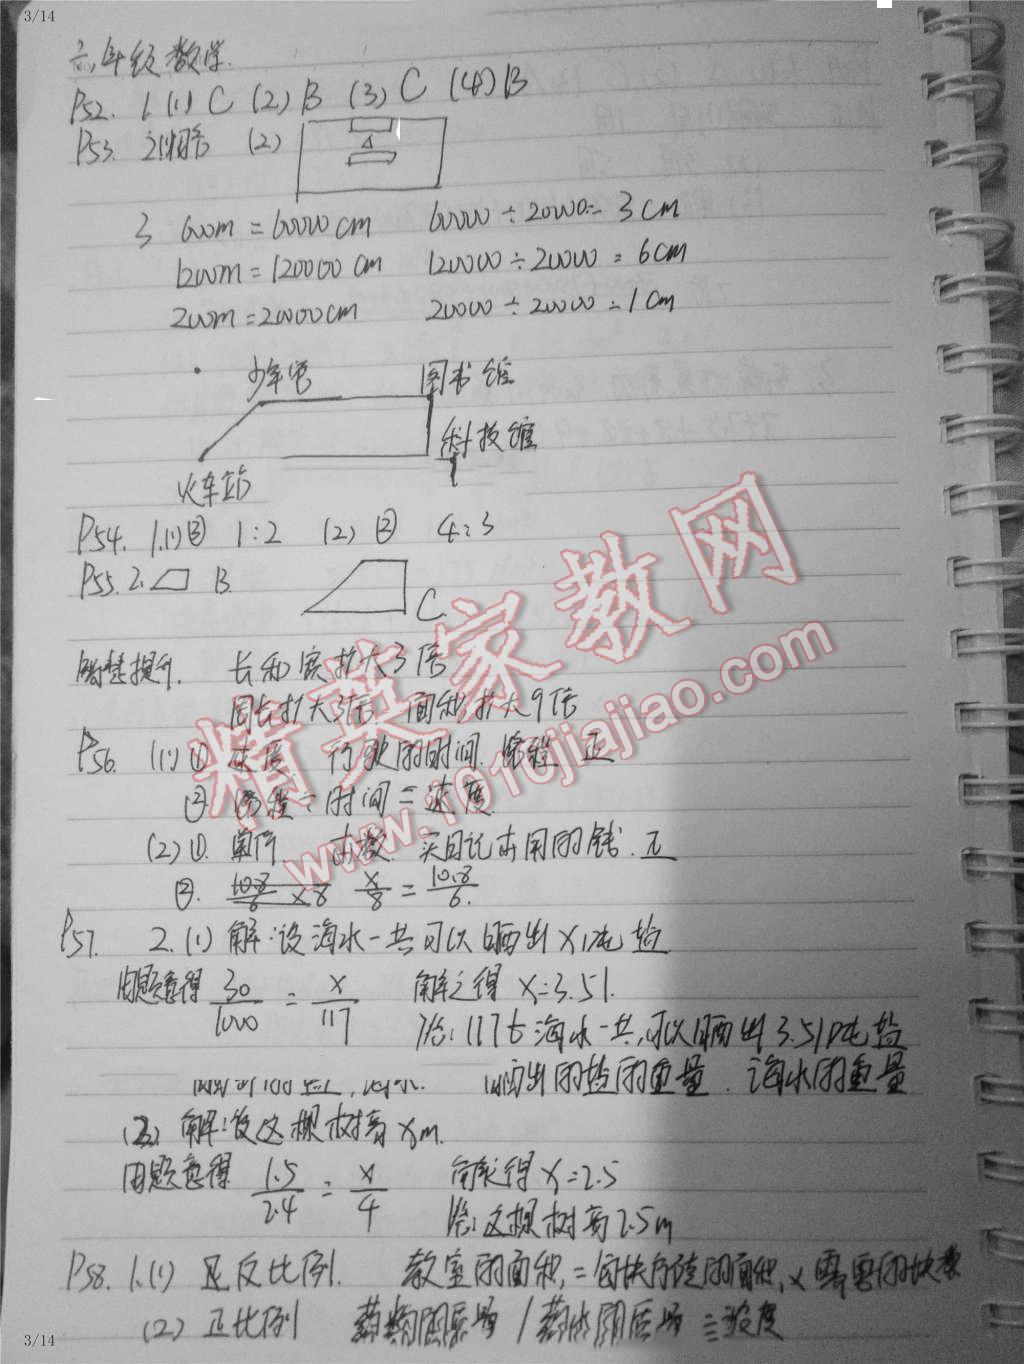 3/14
六年级数学.
P52. 1. (1) C (2) B (3) C (4) B
P53. 2. (2)
3 600m = 60000cm 60000÷20000=3cm
1200m=120000cm 120000÷20000=6cm
200m=20000cm 20000÷20000=1cm
少年宫 图书馆
科技馆
火车站
P54. 1.(1)② 1:2 (2)② 4:3
P55.2. B
C.
智慧提升. 长和宽扩大3倍
周长扩大3倍 面积扩大9倍
P56. 1(1)① 速度 行驶的时间. 路程 正
② 路程÷时间=速度.
(2)①. 单价 本数. 买日记本用的钱. 正
②. 10.8/6 ×8 x/8 = 10.8/6.
P57. 2.(1)解:设海水一共可以晒出x吨盐
由题意得 30/1000 = x/117 解之得 x=3.51.
答:117t海水一共可以晒出3.51吨盐
晒出的盐的重量. 海水的重量
(3) 解:设这棵树高xm.
由题意得 1.5/2.4 = x/4 解之得x=2.5
答:这棵树高2.5m
P58. 1.(1) 反比例. 教室的面积,=每块方砖的面积,×需要的块数
(2) 正比例 药物的质量/药水的质量=浓度
3/14
精英家教网
www.1010jiajiao.com